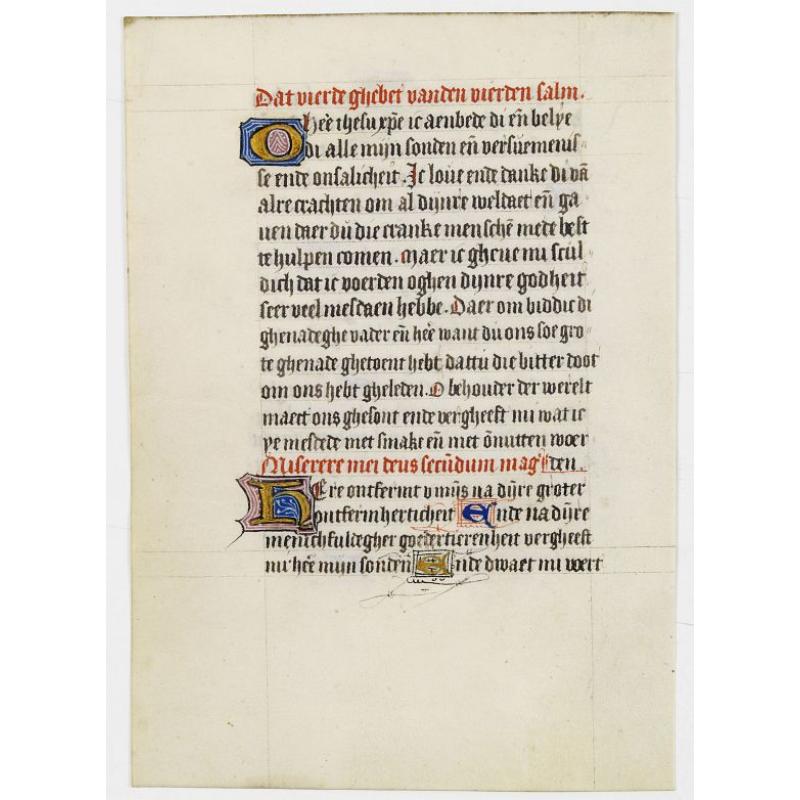 Dat vierde ghebet vanden vierden salm.
O hēe ihesu xp̄e ic aenbede di en̄ belye
di alle mijn sonden en̄ versuemenis
se ende onsalicheit. Ic loue ende danke di vā
alre crachten om al dijnre weldaet en̄ ga
uen daer dū die cranke menschē mede best
te hulpen comen. Maer ic gheue mi scul
dich dat ic voerden oghen dijnre godheit
seer veel mesdaen hebbe. Daer om biddic di
ghenadeghe vader en̄ hēe want du ons soe gro
te ghenade ghetoent hebt dattu die bitter doot
om ons hebt gheleden. O behouder der werelt
maect ons ghesont ende vergheeft mi wat ic
ye mesdede met smake en̄ met ōnutten woer
Miserere mei deus secūdum mag den.
Here ontfermt v mijs na dijre groter
ontfermherticheit Ende na dijre
menichfuldegher goedertierenheit vergheeft
mi hēe mijn sonden Ende dwaet mi voert